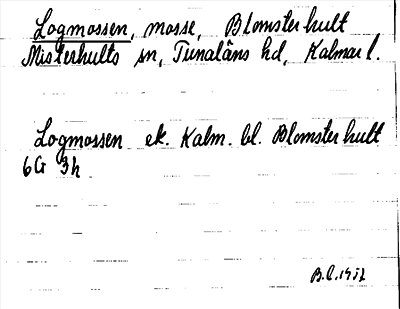 Logmossen, mosse, Blomsterhult
Misterhults sn, Tunaläns hd, Kalmar l.
Logmossen ek. Kalm. bl. Blomsterhult
6G 3h